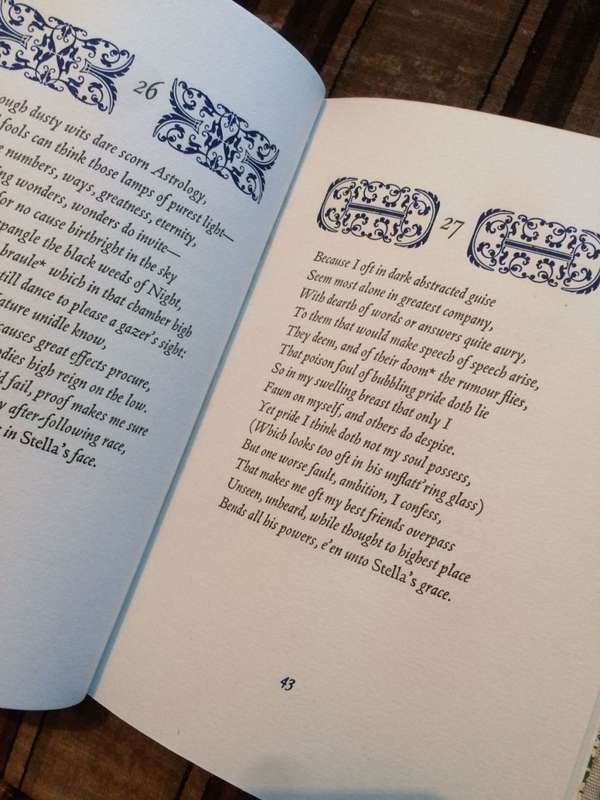 26
ough dusty wits dare scorn Astrology,
fools can think those lamps of purest light—
numbers, ways, greatness, eternity,
ng wonders, wonders do invite—
for no cause birthright in the sky
spangle the black weeds of Night,
braule* which in that chamber high
still dance to please a gazer's sight:
ature unidle know,
causes great effects procure,
odies high reign on the low.
d fail, proof makes me sure
y after-following race,
t in Stella's face.
27
Because I oft in dark abstracted guise
Seem most alone in greatest company,
With dearth of words or answers quite awry,
To them that would make speech of speech arise,
They deem, and of their doom* the rumour flies,
That poison foul of bubbling pride doth lie
So in my swelling breast that only I
Fawn on myself, and others do despise.
Yet pride I think doth not my soul possess,
(Which looks too oft in his unflatt'ring glass)
But one worse fault, ambition, I confess,
That makes me oft my best friends overpass
Unseen, unheard, while thought to highest place
Bends all his powers, e'en unto Stella's grace.
43